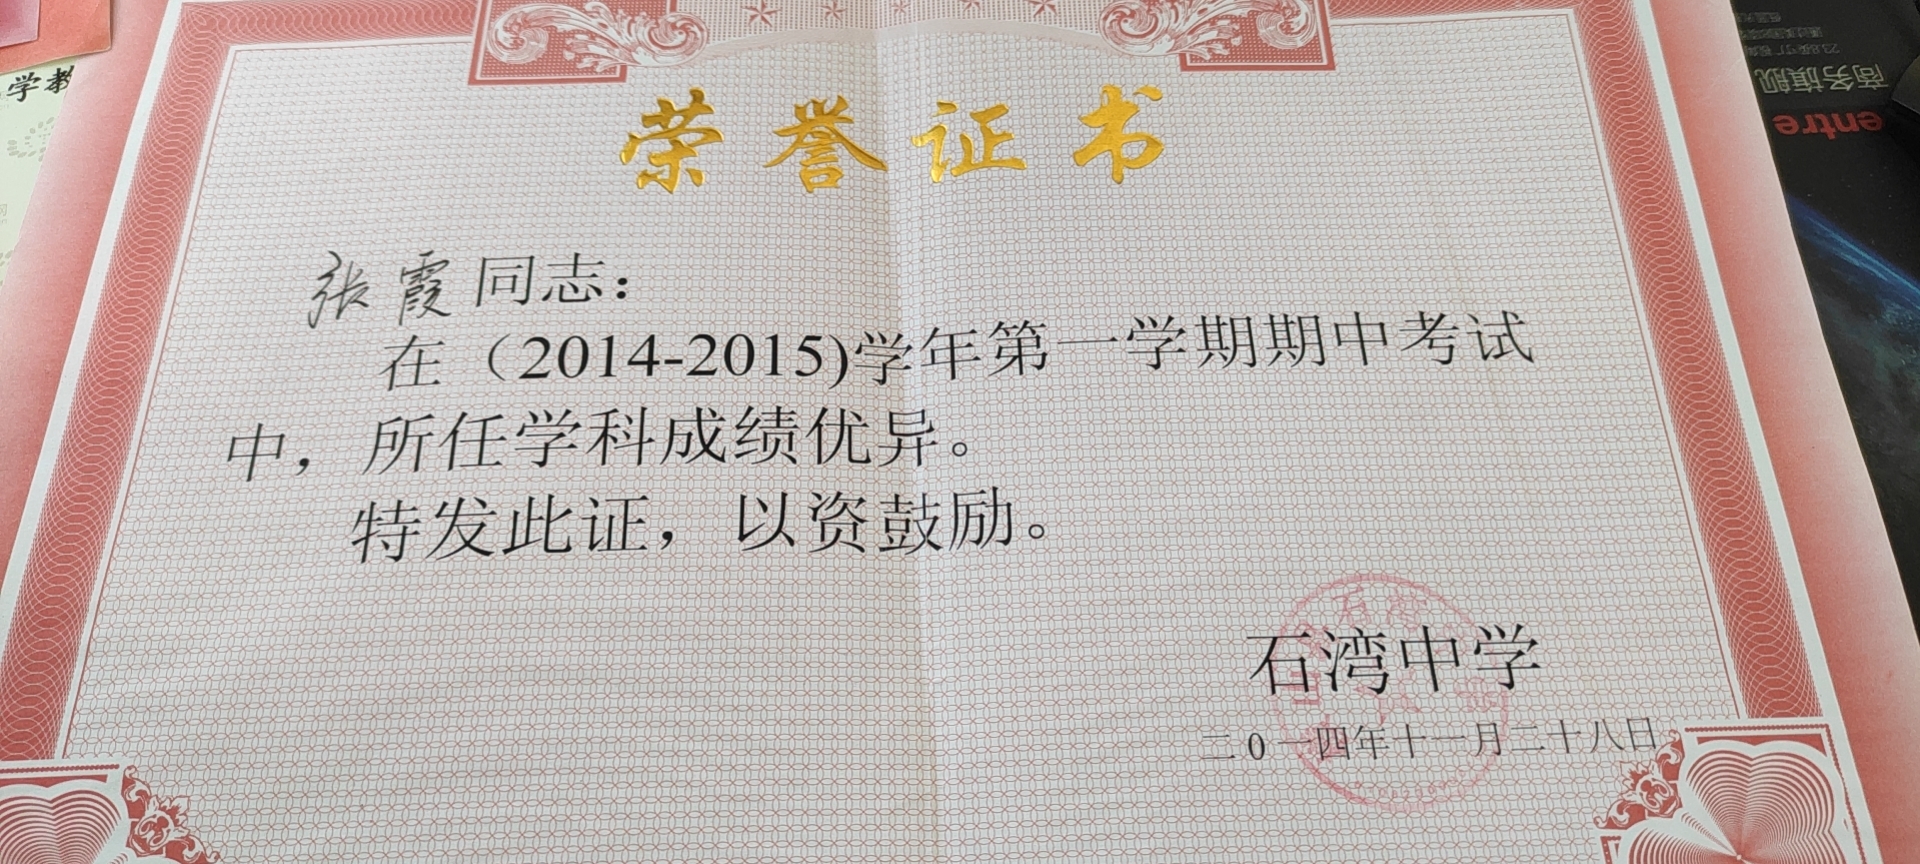 荣誉证书
张霞同志：
在（2014-2015)学年第一学期期中考试
中，所任学科成绩优异。
特发此证，以资鼓励。
石湾中学
二0一四年十一月二十八日
学教
商务旗舰
entre